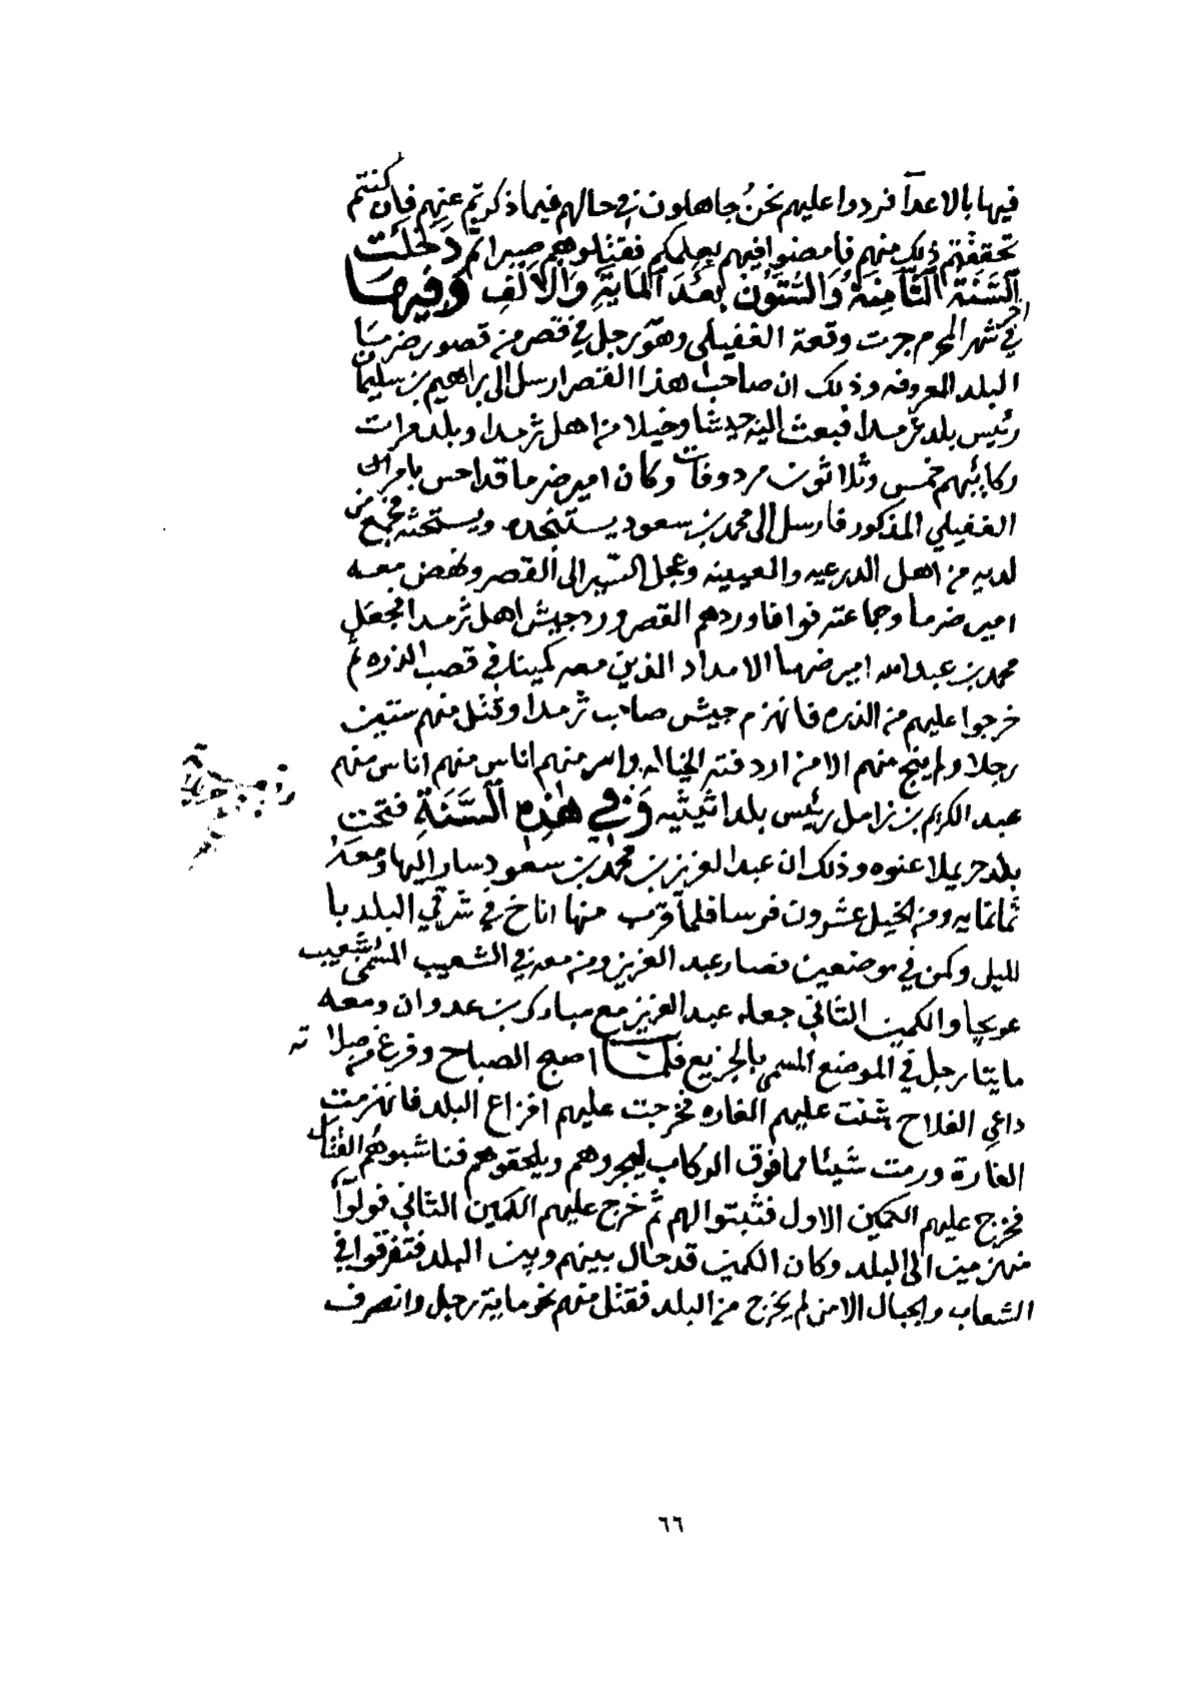 فيها بالاعدآ فردوا عليهم نحنُ جاهلون في حالهم فيما ذكرتم عنهم فان كنتم
تحققتم ذلك منهم فامضوا فيهم بعلمكم فقتلوهم صبرا ثم دخلت
السَّنَة الثَّامِنَةُ وَالسُّتوُّن بَعُدَ المايَةِ وَالالَفِ وَفيهَا
في اخر شهر المحرم جرت وقعة الغفيلي وهو رجل في قصر من قصور ضرما
البلد المعروفه وذلك ان صاحب هذا القصر ارسل الى براهيم بن سليمان
رئيس بلد ثرمدا فبعث اليه جيشا وخيلا من اهل ثرمدا وبلد مرات
ركايبهم خمس وثلاثون مردوفات وكان امير ضرما قد احس بامر ال
الغفيلي المذكور فارسل الى محمد بن سعود يستنجده ويستحثه فجمع من
لديه من اهل الدرعيه والعيينه وعجل السير الى القصر ونهض معه
امير ضرما وجماعته فوافا وردهم القصر ورد جيش اهل ثرمدا فجعل
محمد بن عبدالله امير ضرما الامداد الذين معه كمينا في قصب الذره ثم
خرجوا عليهم من الذره فانهزم جيش صاحب ثرمدا وقتل منهم ستين
رجلا ولم ينج منهم الا من اردفته الخياله واسر منهم اناس منهم اناس منهم
عبد الكريم بن زامل رئيس بلد اثيثيه وَفي هذِهِ السَّنَةِ فتحت
بلد حريملا عنوه وذلك ان عبد العزيز بن محمد بن سعود سار اليها ومعه
ثمانمايه ومن الخيل عشرون فرسا فلما قرب منها اناخ في شرقي البلد با
لليل وكمن في موضعين فصار عبد العزيز ومن معه في الشعيب المسمى شعيب
عويجا والكمين الثاني جعله عبد العزيز مع مبارك بن عدوان ومعه
مايتا رجل في الموضع المسمى بالجزيع فلما اصبح الصباح وفرغ من صلاته
داعي الفلاح شنت عليهم الغاره فخرجت عليهم افزاع البلد فانهزمت
الغارة ورمت شيئا مما فوق الركاب ليجروهم ويلحقوهم فناشبوهُم القتال
فخرج عليهم الكمين الاول فثبتوا لهم ثم خرج عليهم الكمين الثاني فولوا
منهزمين الى البلد وكان الكمين قد حال بينهم وبين البلد فتفرقوا في
الشعاب والجبال الا من لم يخرج من البلد فقتل منهم نحو ماية رجل وانصرف
٦٦